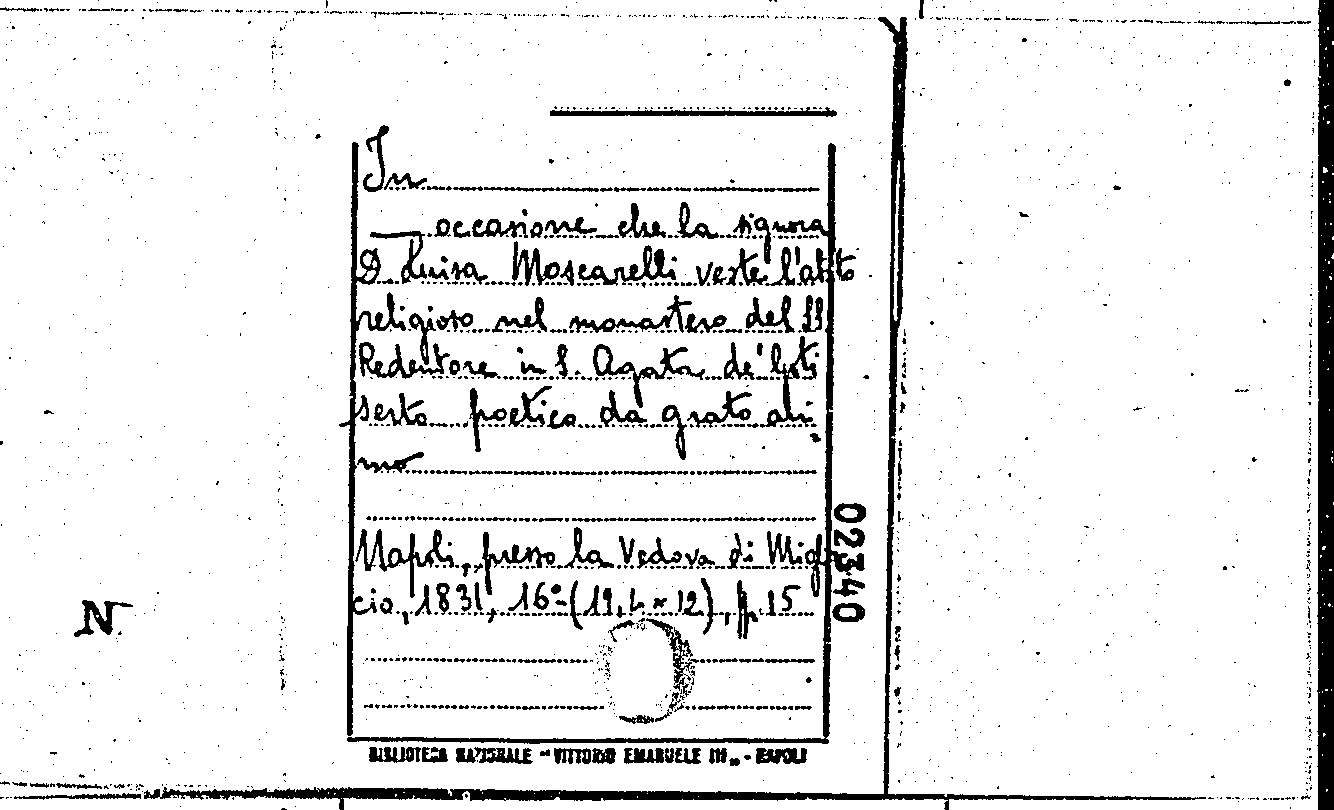 In
— occasione che la signora
D Luisa Moscarelli veste l'abito
religioso nel monastero del SS.
Redentore in S. Agata de' Goti
serto poetico da grato ani
mo
Napoli, presso la Vedova di Miglac
cio, 1831, 16º (19, × 12), p. 15
BIBLIOTECA NAZIONALE "VITTORIO EMANUELE III" - NAPOLI
02340
N